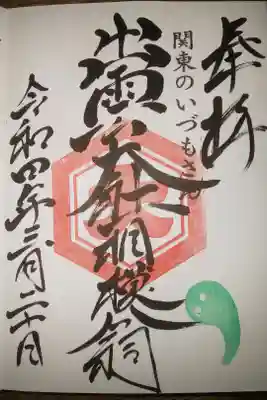 奉拝
関東のいづもさん
出雲大社相模分祠
令和四年三月二十日